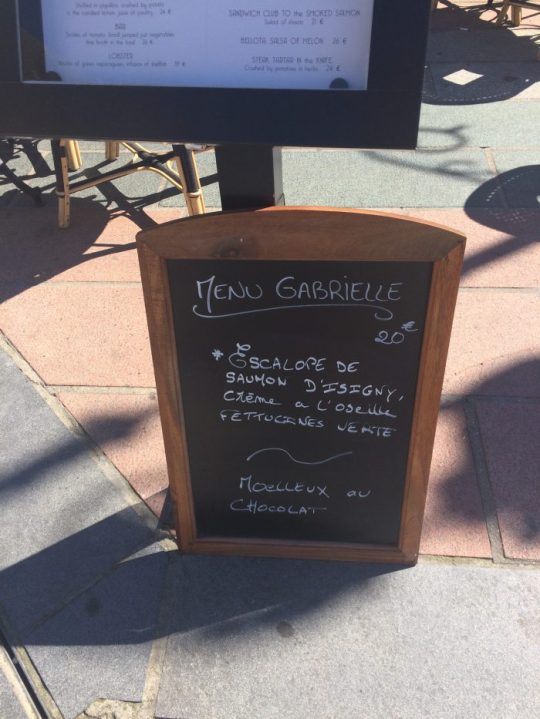 Stuffed in papillon, crushed by potatoes
in the candied tomato, juice of poultry 24 €
BAR
tomato, small jumped just vegetables
fine broth in the basil 26 €
LOBSTER
of green asparagus, infusion of shellfish 39 €
SANDWICH CLUB TO the SMOKED SALMON
Salad of shoots 21 €
BELLOTA SALSA OF MELON 26 €
STEAK TARTAR IN the KNIFE
Crushed by potatoes in herbs 24 €
MENU GABRIELLE
20€
* ESCALOPE DE
SAUMON D'ISIGNY,
CRÈME A L'OSEILLE
FETTUCINES VERTE
MOELLEUX AU
CHOCOLAT